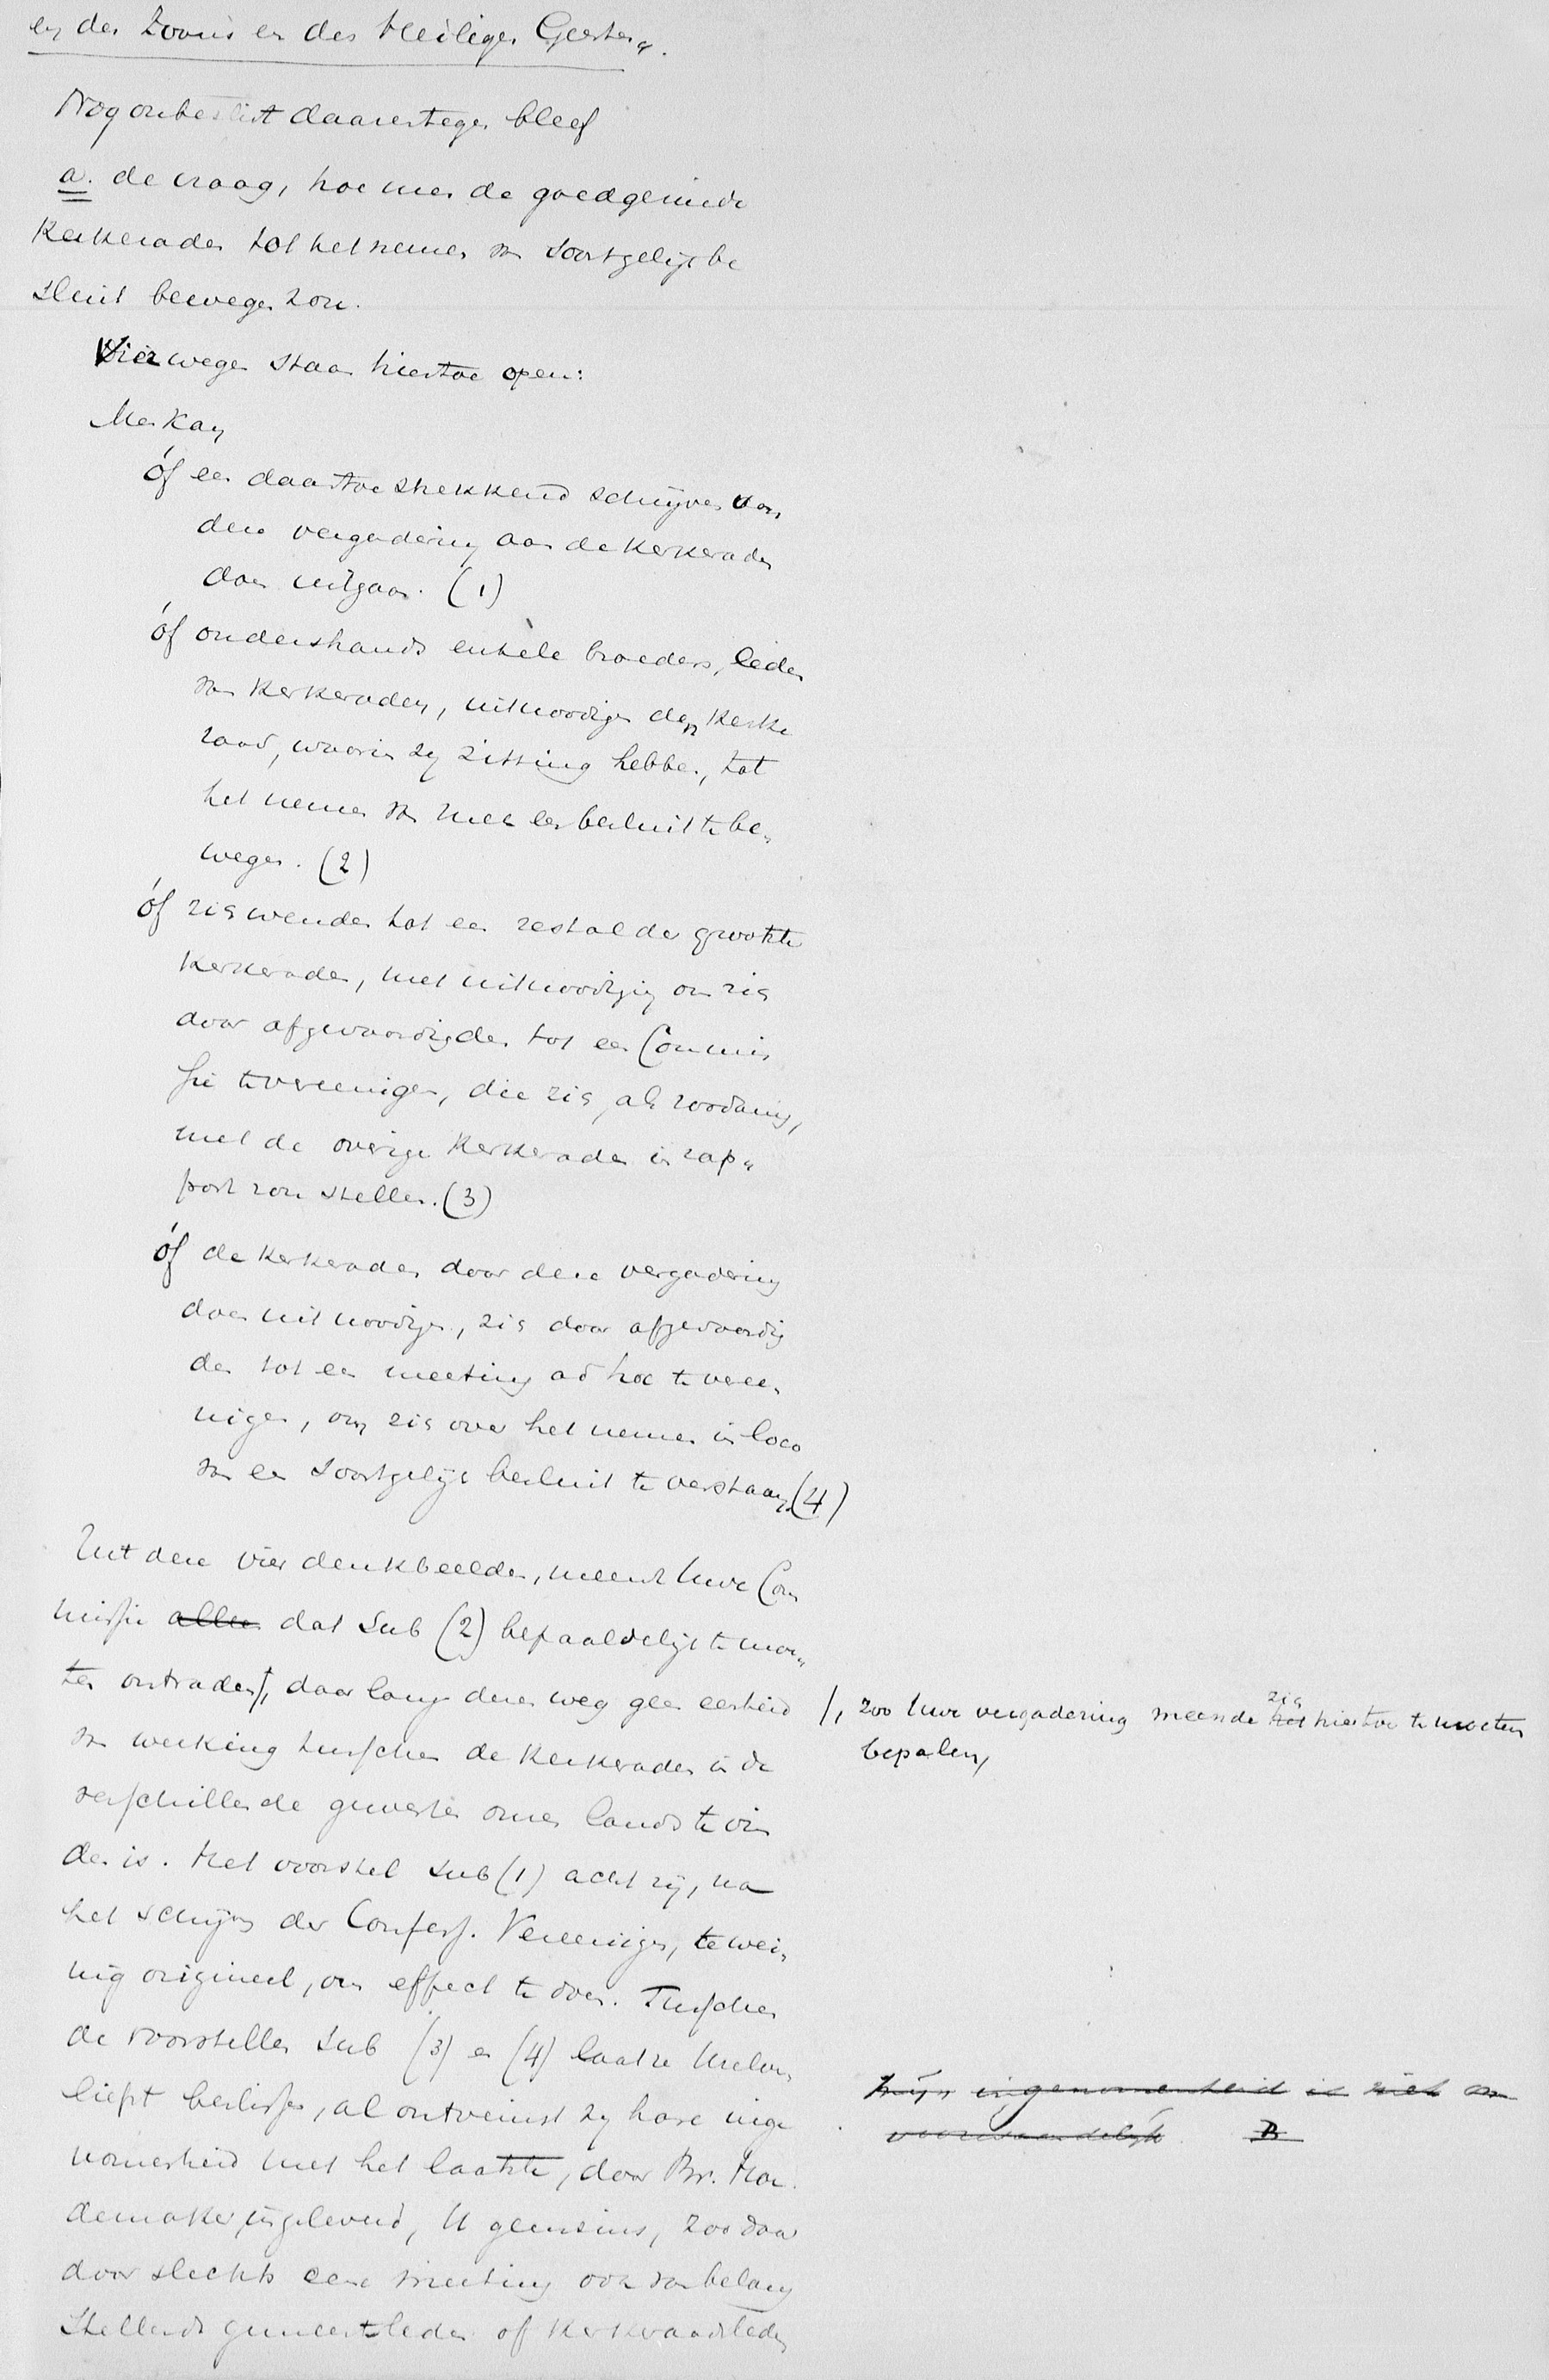 en des Zoons en des Heiligen Geestes".
Nog onbeslist daarentegen bleef
a. de vraag, hoe men de goedgezinde
Kerkeraden tot het nemen van soortgelijk be
sluit bewegen zou.
Vier wegen staan hiertoe open:
Men kan
óf een daartoe strekkend schrijven van
deze vergadering aan de Kerkeraden
doen uitgaan. (1)
óf ondershands enkele broeders, leden
van Kerkeraden, uitnoodigen den Kerke
raad, waarin zij zitting hebben, tot
het nemen van zulk een besluit te be„
wegen. (2)
óf zich wenden tot een zestal der grootste
Kerkeraden, met uitnoodiging om zich
door afgevaardigden tot een Commis
sie te vereenigen, die zich, als zoodanig,
met de overige Kerkeraden in rap„
port zou stellen. (3)
óf de Kerkeraden door deze vergadering
doen uitnoodigen, zich door afgevaardig
den tot een meeting ad hoc te veree„
nigen, om zich over het nemen in loco
van een soortgelijk besluit te verstaan (4)
Uit deze vier denkbeelden, meent Uwe Com
missie allen dat sub (2) bepaaldelijk te moe„
ten ontraden/, daar langs dezen weg geen eenheid
/, zoo Uwe vergadering meende het zich hiertoe te moeten
bepalen,
van werking tusschen de Kerkeraden in de
verschillende gewesten onzes lands te vin
den is. Het voorstel sub (1) acht zij, na
het schrijven der Confess. Vereeniging, te wei„
nig origineel, om effect te doen. Tusschen
de voorstellen sub (3) en (4) laat ze Uzelven
liefst beslissen, al ontveinst zij hare inge
nomenheid met het laatste, door Br. Hoe
demaker ingeleverd, U geenszins, zoo daar
door slechts eene meeting ook van belang
stellende gemeenteleden of kerkeraadsleden
hijs ingenomenheid is niet on
voorwaardelijk B